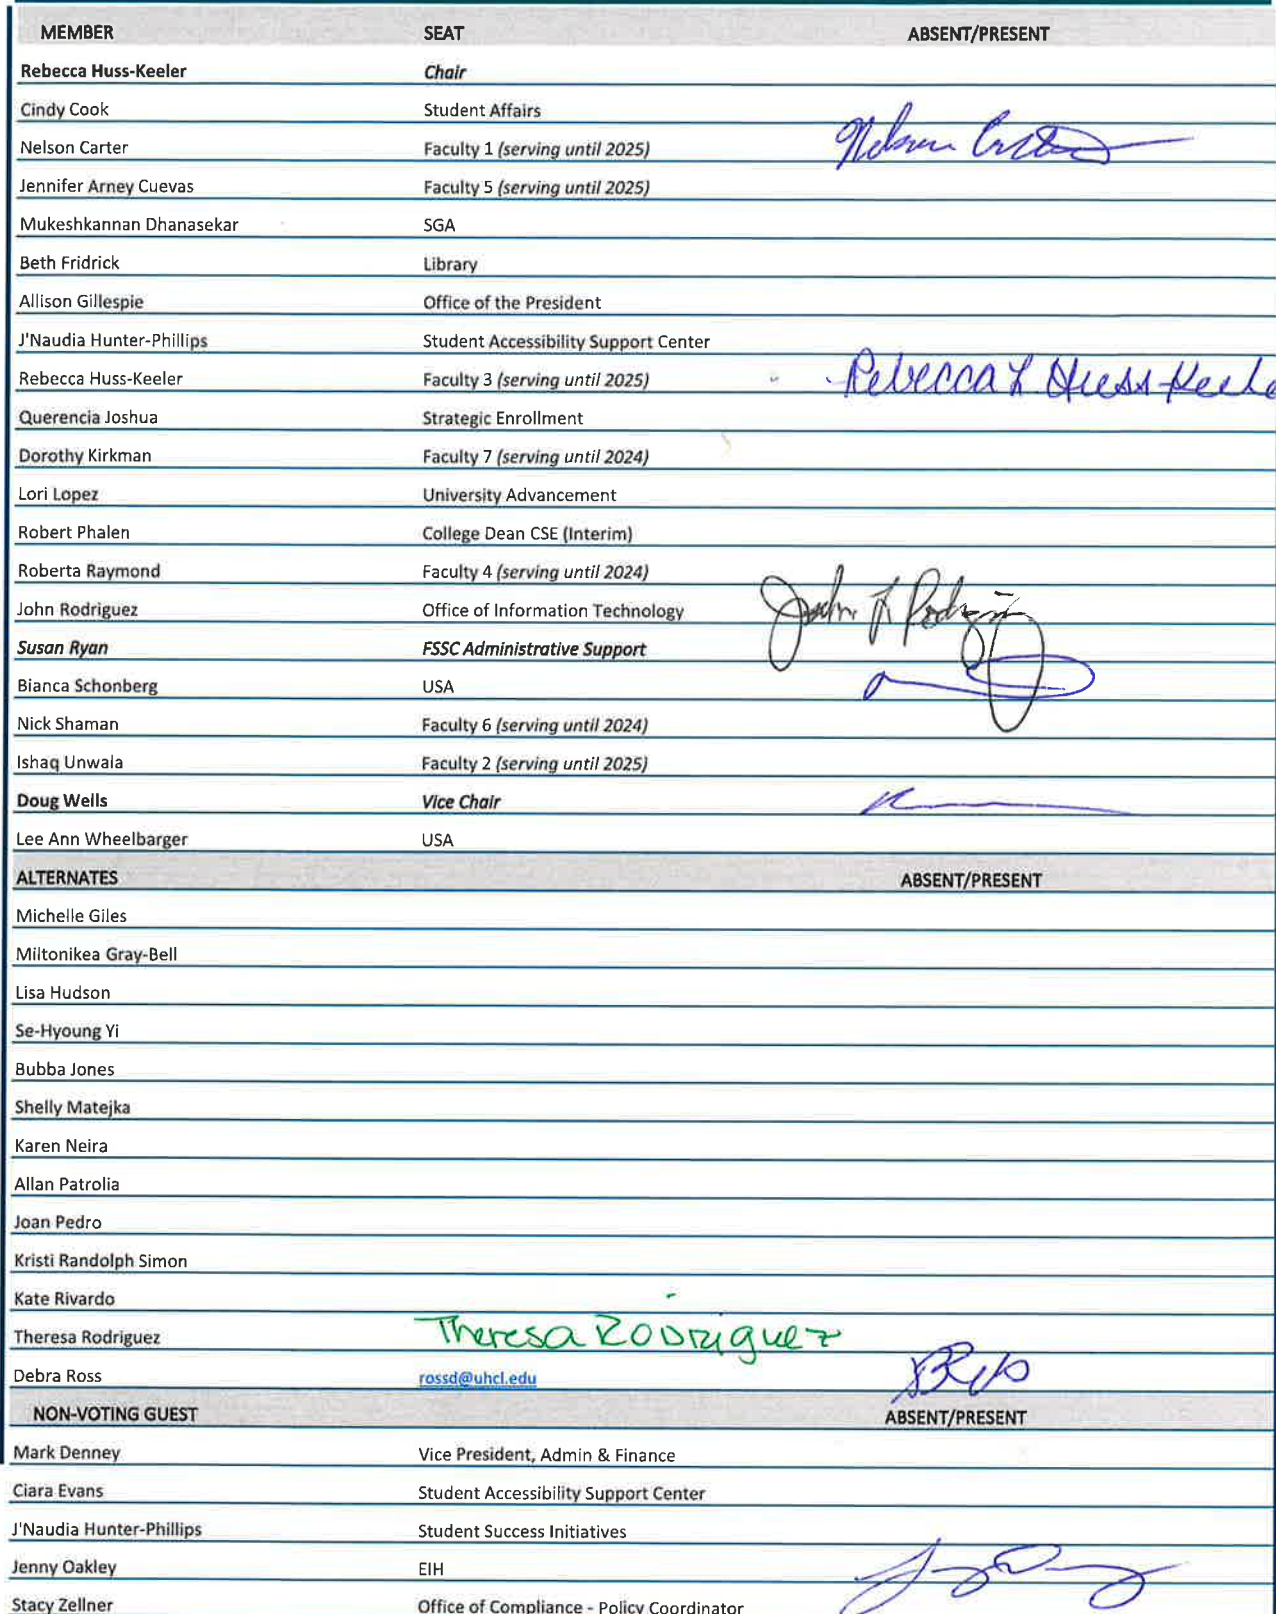 MEMBER SEAT ABSENT/PRESENT
Rebecca Huss-Keeler Chair
Cindy Cook Student Affairs
Nelson Carter Faculty 1 (serving until 2025) Nelson Carter
Jennifer Arney Cuevas Faculty 5 (serving until 2025)
Mukeshkannan Dhanasekar SGA
Beth Fridrick Library
Allison Gillespie Office of the President
J'Naudia Hunter-Phillips Student Accessibility Support Center
Rebecca Huss-Keeler Faculty 3 (serving until 2025) Rebecca L Huss-Keele
Querencia Joshua Strategic Enrollment
Dorothy Kirkman Faculty 7 (serving until 2024)
Lori Lopez University Advancement
Robert Phalen College Dean CSE (Interim)
Roberta Raymond Faculty 4 (serving until 2024)
John Rodriguez Office of Information Technology John F Rodrig
Susan Ryan FSSC Administrative Support
Bianca Schonberg USA
Nick Shaman Faculty 6 (serving until 2024)
Ishaq Unwala Faculty 2 (serving until 2025)
Doug Wells Vice Chair
Lee Ann Wheelbarger USA
ALTERNATES ABSENT/PRESENT
Michelle Giles
Miltonikea Gray-Bell
Lisa Hudson
Se-Hyoung Yi
Bubba Jones
Shelly Matejka
Karen Neira
Allan Patrolia
Joan Pedro
Kristi Randolph Simon
Kate Rivardo
Theresa Rodriguez Theresa Rodriguez
Debra Ross rossd@uhcl.edu
NON-VOTING GUEST ABSENT/PRESENT
Mark Denney Vice President, Admin & Finance
Ciara Evans Student Accessibility Support Center
J'Naudia Hunter-Phillips Student Success Initiatives
Jenny Oakley EIH
Stacy Zellner Office of Compliance - Policy Coordinator